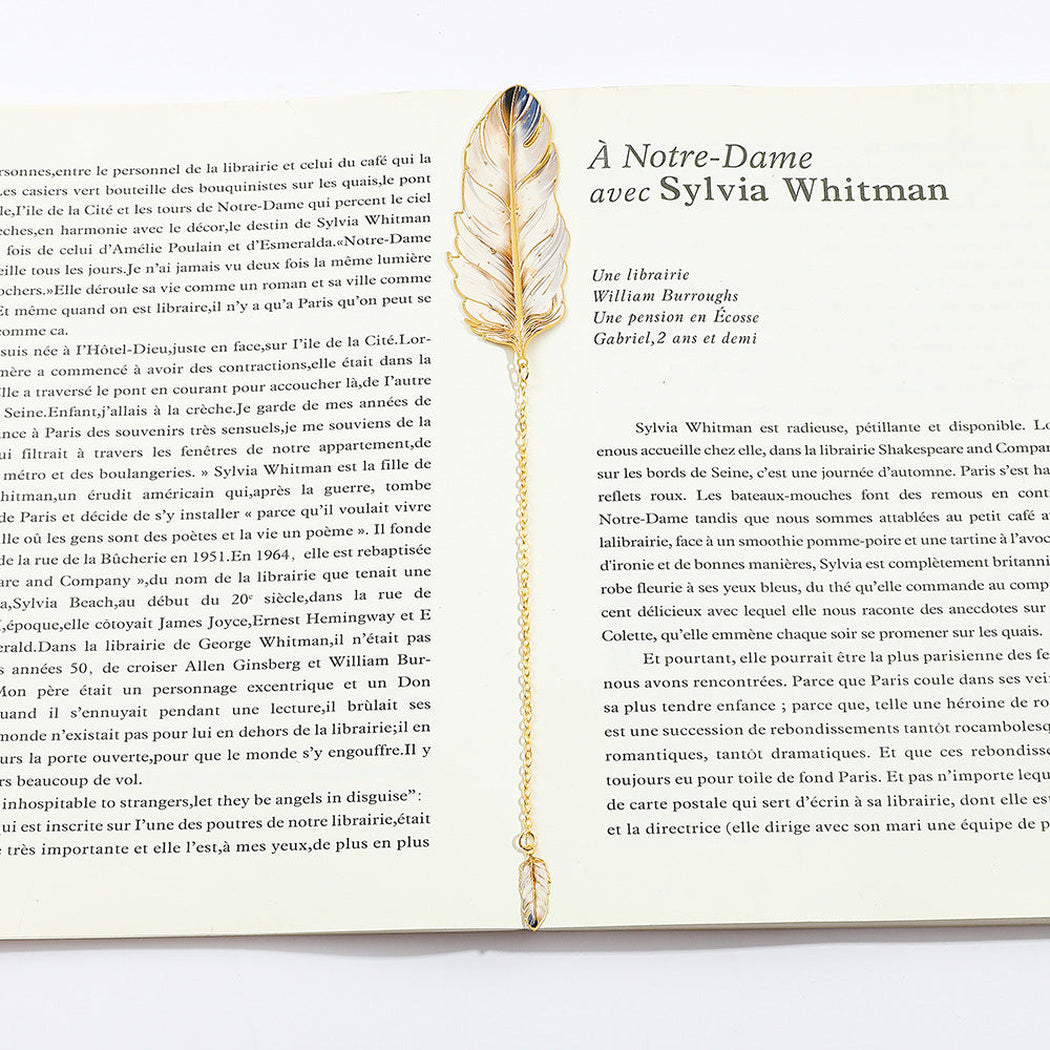 rsonnes,entre le personnel de la librairie et celui du café qui la
Les casiers vert bouteille des bouquinistes sur les quais,le pont
le,I'ile de la Cité et les tours de Notre-Dame qui percent le ciel
èches,en harmonie avec le décor,le destin de Sylvia Whitman
fois de celui d'Amélie Poulain et d'Esmeralda.«Notre-Dame
eille tous les jours.Je n'ai jamais vu deux fois la même lumière
ochers.»Elle déroule sa vie comme un roman et sa ville comme
Et même quand on est libraire,il n'y a qu'a Paris qu'on peut se
comme ca.
suis née à I'Hôtel-Dieu,juste en face,sur I'ile de la Cité.Lor-
mère a commencé à avoir des contractions,elle était dans la
lle a traversé le pont en courant pour accoucher là,de I'autre
Seine.Enfant,j'allais à la crèche.Je garde de mes années de
nce à Paris des souvenirs très sensuels,je me souviens de la
ui filtrait à travers les fenêtres de notre appartement,de
métro et des boulangeries. » Sylvia Whitman est la fille de
hitman,un érudit américain qui,après la guerre, tombe
de Paris et décide de s'y installer « parce qu'il voulait vivre
lle oû les gens sont des poètes et la vie un poème ». Il fonde
de la rue de la Bûcherie en 1951.En 1964, elle est rebaptisée
are and Company »,du nom de la librairie que tenait une
a,Sylvia Beach,au début du 20e siècle,dans la rue de
I,époque,elle côtoyait James Joyce,Ernest Hemingway et E
erald.Dans la librairie de George Whitman,il n'était pas
s années 50, de croiser Allen Ginsberg et William Bur-
Mon père était un personnage excentrique et un Don
uand il s'ennuyait pendant une lecture,il brûlait ses
monde n'existait pas pour lui en dehors de la librairie;il en
urs la porte ouverte,pour que le monde s'y engouffre.Il y
rs beaucoup de vol.
inhospitable to strangers,let they be angels in disguise":
ui est inscrite sur I'une des poutres de notre librairie,était
e très importante et elle l'est,à mes yeux,de plus en plus
À Notre-Dame
avec Sylvia Whitman
Une librairie
William Burroughs
Une pension en Écosse
Gabriel,2 ans et demi
Sylvia Whitman est radieuse, pétillante et disponible. Lo
enous accueille chez elle, dans la librairie Shakespeare and Compan
sur les bords de Seine, c'est une journée d'automne. Paris s'est ha
reflets roux. Les bateaux-mouches font des remous en cont
Notre-Dame tandis que nous sommes attablées au petit café a
lalibrairie, face à un smoothie pomme-poire et une tartine à l'avoc
d'ironie et de bonnes manières, Sylvia est complètement britanni
robe fleurie à ses yeux bleus, du thé qu'elle commande au comp
cent délicieux avec lequel elle nous raconte des anecdotes sur
Colette, qu'elle emmène chaque soir se promener sur les quais.
Et pourtant, elle pourrait être la plus parisienne des fe
nous avons rencontrées. Parce que Paris coule dans ses vei
sa plus tendre enfance ; parce que, telle une héroine de ro
est une succession de rebondissements tantôt rocambolesq
romantiques, tantôt dramatiques. Et que ces rebondisse
toujours eu pour toile de fond Paris. Et pas n'importe lequ
de carte postale qui sert d'écrin à sa librairie, dont elle est
et la directrice (elle dirige avec son mari une équipe de p